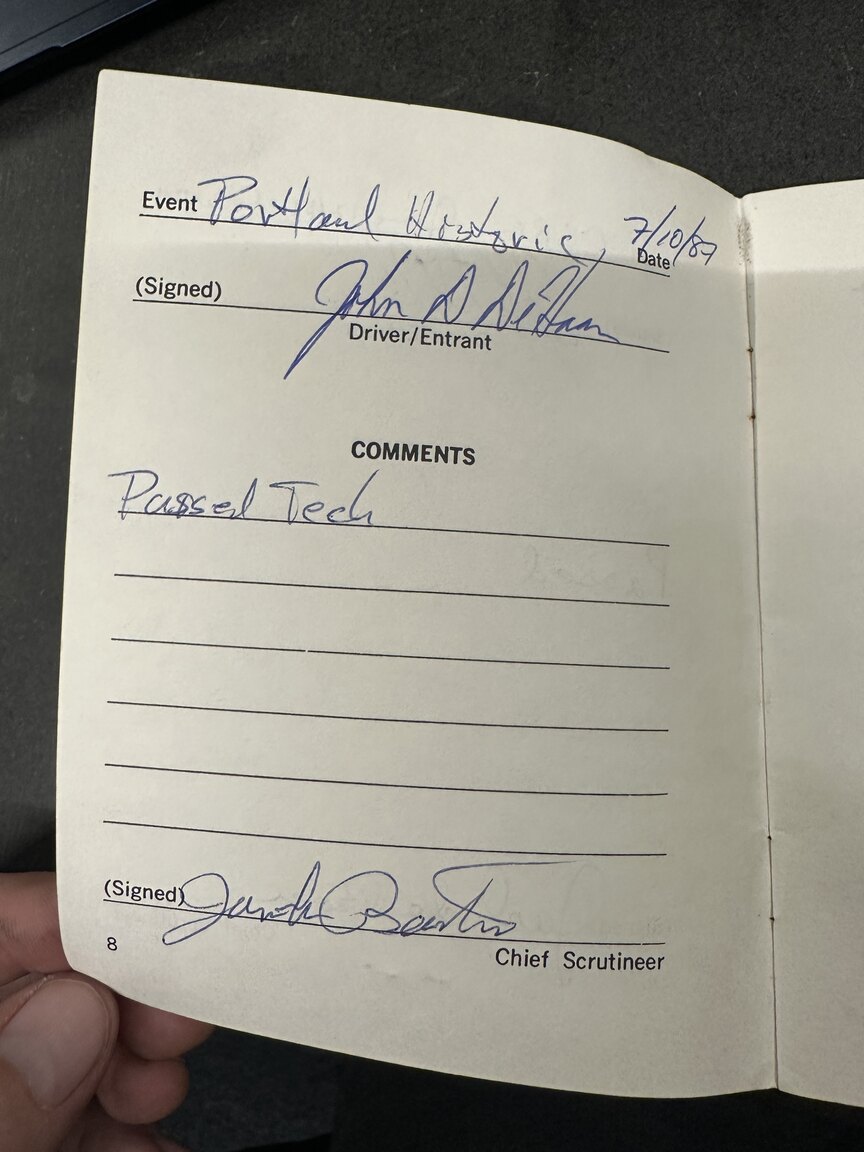 Event Portland Historic, 7/10/87
Date
(Signed) John D DeHaan
Driver/Entrant
COMMENTS
Passed Tech
(Signed)
8
Chief Scrutineer